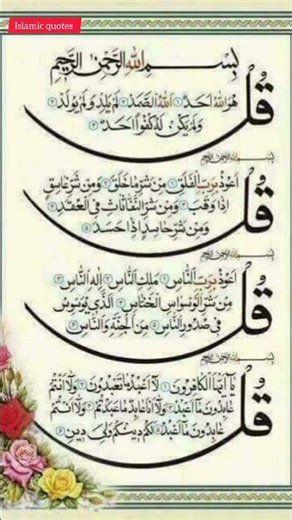 Islamic quotes
بِسْمِ اللهِ الرَّحْمٰنِ الرَّحِيْمِ
قُلْ هُوَ اللهُ اَحَدٌ ۝١ اَللهُ الصَّمَدُ ۝٢ لَمْ يَلِدْ وَلَمْ يُوْلَدْ ۝٣
وَلَمْ يَكُنْ لَهُ كُفُوًا اَحَدٌ ۝٤
بِسْمِ اللهِ الرَّحْمٰنِ الرَّحِيْمِ
قُلْ اَعُوْذُ بِرَبِّ الْفَلَقِ ۝١ مِنْ شَرِّ مَا خَلَقَ ۝٢ وَمِنْ شَرِّ غَاسِقٍ
اِذَا وَقَبَ ۝٣ وَمِنْ شَرِّ النَّفَّاثَاتِ فِي الْعُقَدِ ۝٤
وَمِنْ شَرِّ حَاسِدٍ اِذَا حَسَدَ ۝٥
بِسْمِ اللهِ الرَّحْمٰنِ الرَّحِيْمِ
قُلْ اَعُوْذُ بِرَبِّ النَّاسِ ۝١ مَلِكِ النَّاسِ ۝٢ اِلٰهِ النَّاسِ ۝٣
مِنْ شَرِّ الْوَسْوَاسِ الْخَنَّاسِ ۝٤ الَّذِيْ يُوَسْوِسُ
فِيْ صُدُوْرِ النَّاسِ ۝٥ مِنَ الْجِنَّةِ وَالنَّاسِ ۝٦
بِسْمِ اللهِ الرَّحْمٰنِ الرَّحِيْمِ
قُلْ يَا اَيُّهَا الْكَافِرُوْنَ ۝١ لَا اَعْبُدُ مَا تَعْبُدُوْنَ ۝٢ وَلَا اَنْتُمْ
عَابِدُوْنَ مَا اَعْبُدُ ۝٣ وَلَا اَنَا عَابِدٌ مَا عَبَدْتُمْ ۝٤ وَلَا اَنْتُمْ
عَابِدُوْنَ مَا اَعْبُدُ ۝٥ لَكُمْ دِيْنُكُمْ وَلِيَ دِيْنِ ۝٦